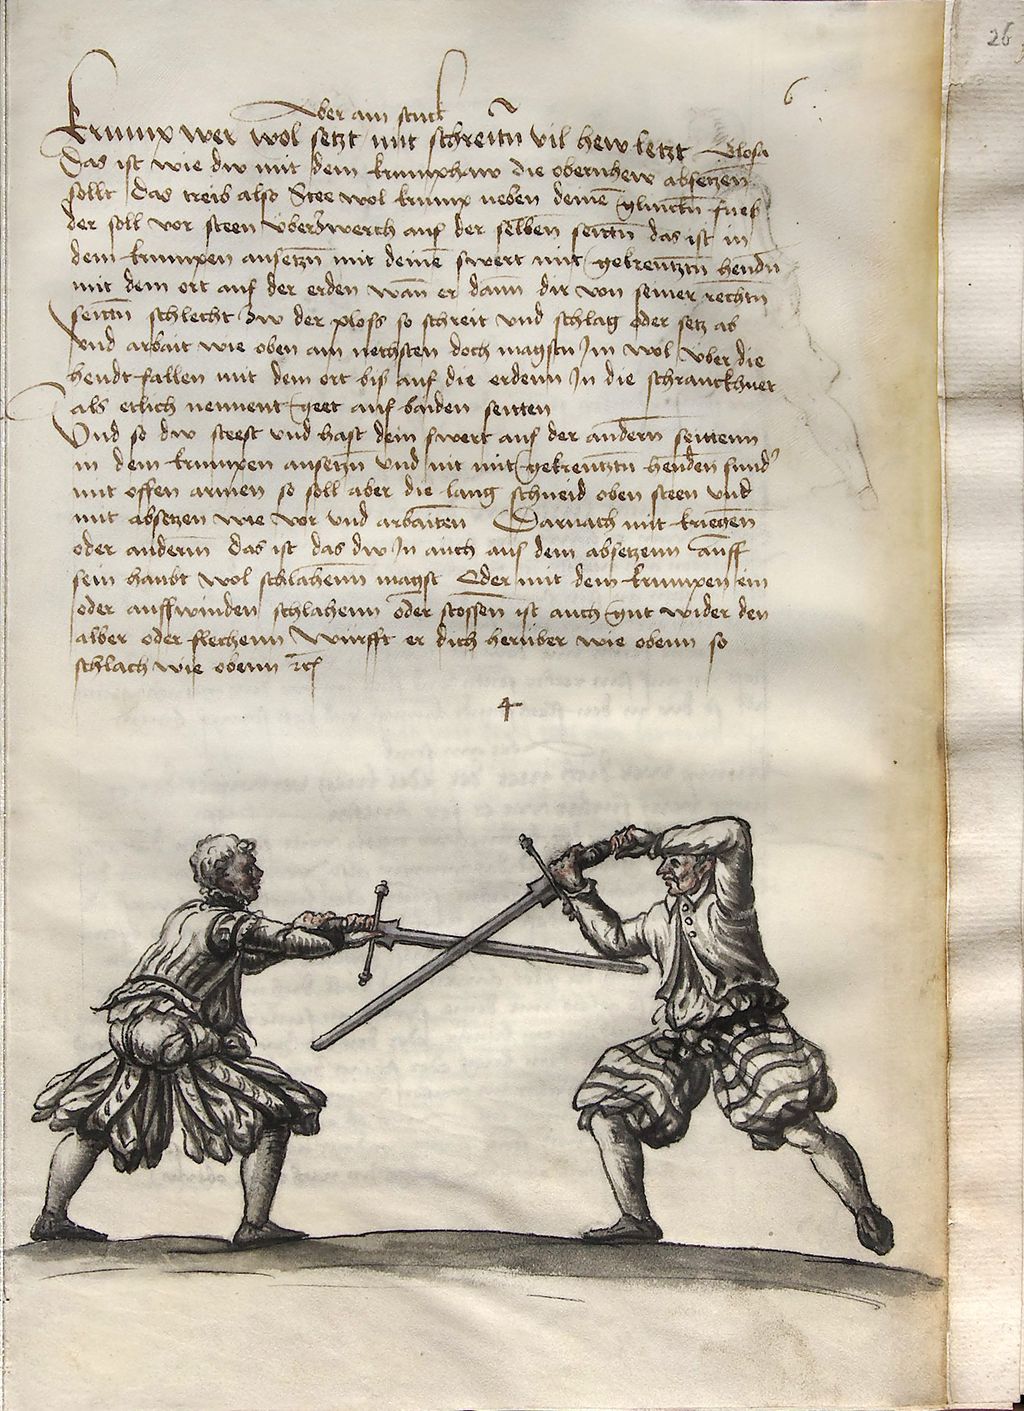 26
6
Aber ain stuck
Krump wer wol setzt mit schreitñ vil hew letzt Glosa
Das ist wie dw mit dem krumphaw die obernhew absetzen̄
sollt das treib also Stee wol krump neben deinē glinckñ fueß
der soll vor steen überzwerch auf der selben seittñ das ist in
dem krumpen ansetzñ mit deinē swert mit gekreutztñ hendñ
mit dem ort auf der erden wañ er dann dir von seiner rechtñ
seittñ schlecht zw der ploss so schreit vnd schlag oder setz ab
vnd arbait wie oben am nechsten doch magstu Im wol über die
hendt fallen mit dem ort biß auf die erdenn In die schranckhuet
als etlich nennent geet auf baiden seitten
Vnd so dw steest vnd hast dein swert auf der andern seittenn
in dem krumpen ansetzñ vnd nit mit gekreutztñ henden sund'
mit offen armen so soll aber die lang schneid oben steen vnd
mit absetzen wie vor vnd arbaiten Darnach mit kriegen
oder anderm das ist das dw In auch auf dem absetzenn auff
sein haubt wol schlahenn magst Oder mit dem krumpen ein
oder auffwinden schlahenn oder stossen ist auch gut wider den
alber oder flechenn Wurfft er dich herüber wie obenn so
schlach wie obenn rc
4